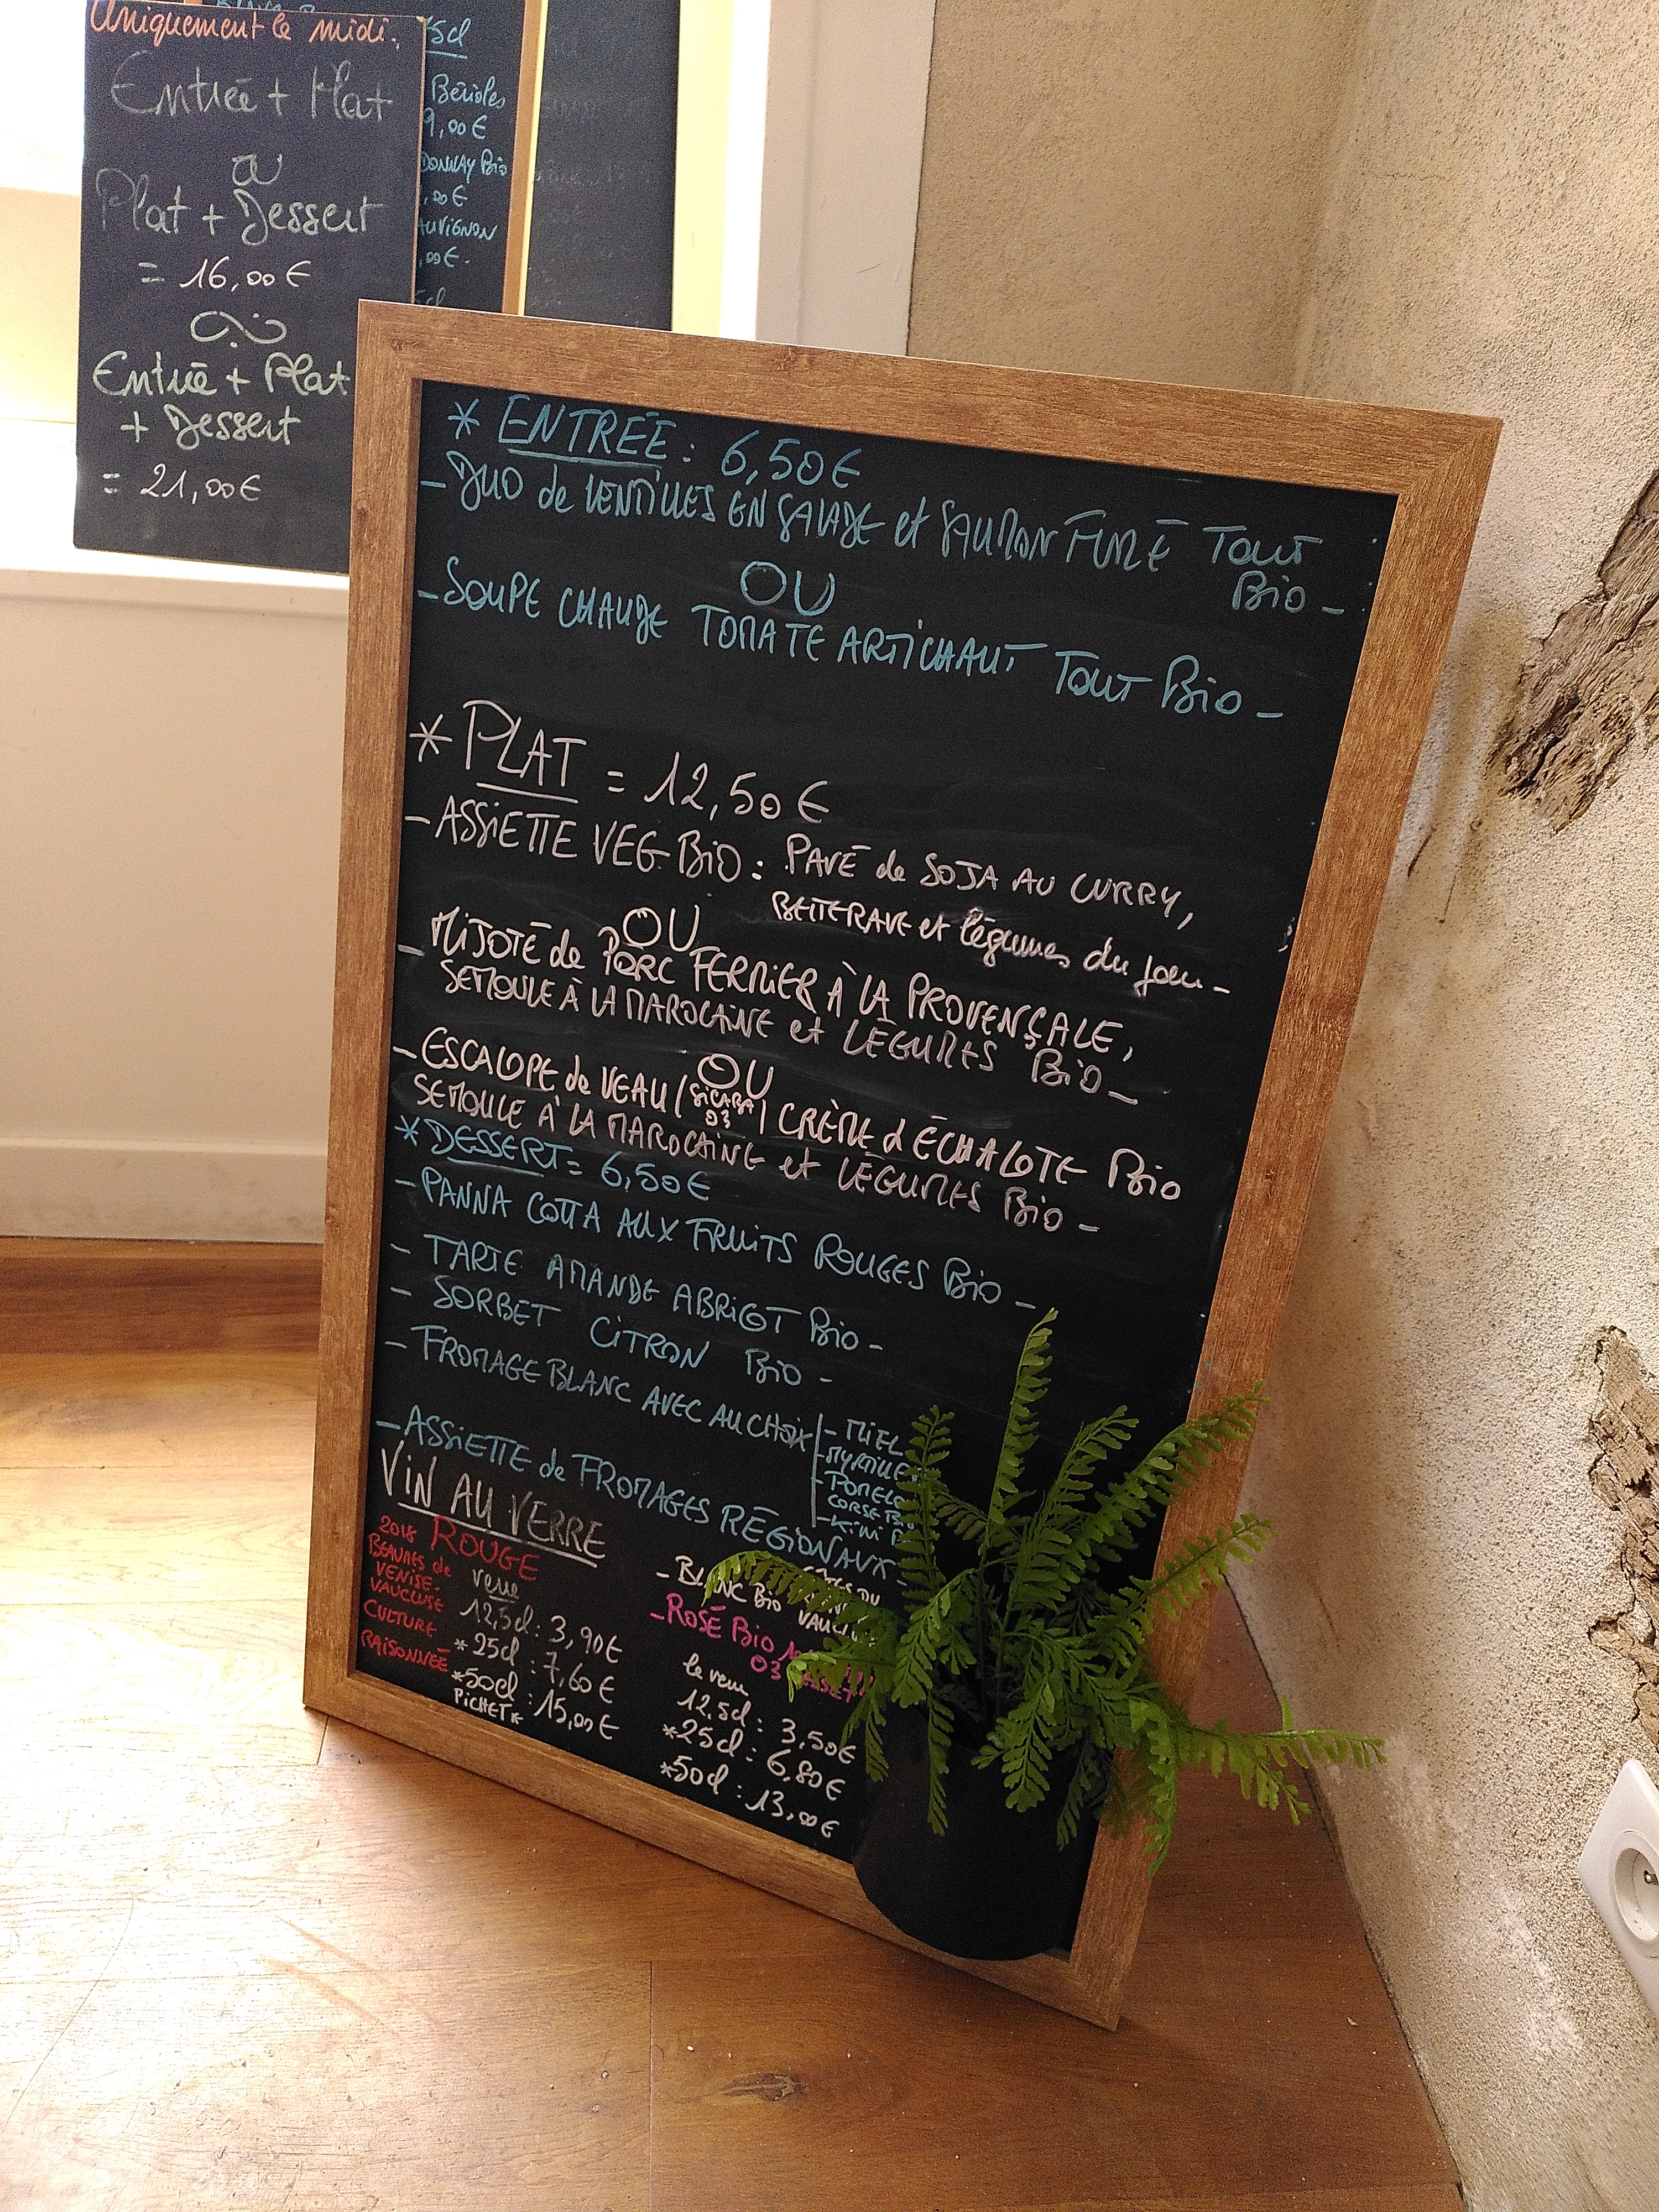 Uniquement le midi.
Entrée + Plat
ou
Plat + Dessert
= 16,00€
Entrée + Plat
+ Dessert
= 21,00€
75cl
Bérioles
9,00€
Bio
,00€
,00€.
* ENTRÉE : 6,50€
- DUO de LENTILLES EN SALADE et SAUMON FUMÉ TOUT
BIO -
OU
- SOUPE CHAUDE TOMATE ARTICHAUT TOUT BIO -
* PLAT = 12,50€
- ASSIETTE VEG BIO : PAVÉ de SOJA AU CURRY,
BETTERAVE et légumes du jour -
OU
- MIJOTÉ de PORC FERMIER À LA PROVENÇALE,
SEMOULE À LA MAROCAINE et LÉGUMES BIO -
OU
- ESCALOPE de VEAU (SICABA 03) CRÈME d ÉCHALOTE BIO
SEMOULE À LA MAROCAINE et LÉGUMES BIO -
* DESSERT = 6,50€
- PANNA COTTA AUX FRUITS ROUGES BIO -
- TARTE AMANDE ABRICOT BIO -
- SORBET CITRON BIO -
- FROMAGE BLANC AVEC AU CHOIX
- MIEL
- MYRTILLE
- POMELO
CORSE
- KIWI
- ASSIETTE de FROMAGES RÉGIONAUX -
VIN AU VERRE
2018 ROUGE
BEAUMES de
VENISE.
VAUCLUSE
CULTURE
RAISONNÉE
verre
12,5cl : 3,90€
* 25cl : 7,60€
*50cl : 15,00€
PICHET*
- BLANC BIO
- ROSÉ BIO
03
le verre
12,5cl : 3,50€
*25cl : 6,80€
*50cl : 13,00€